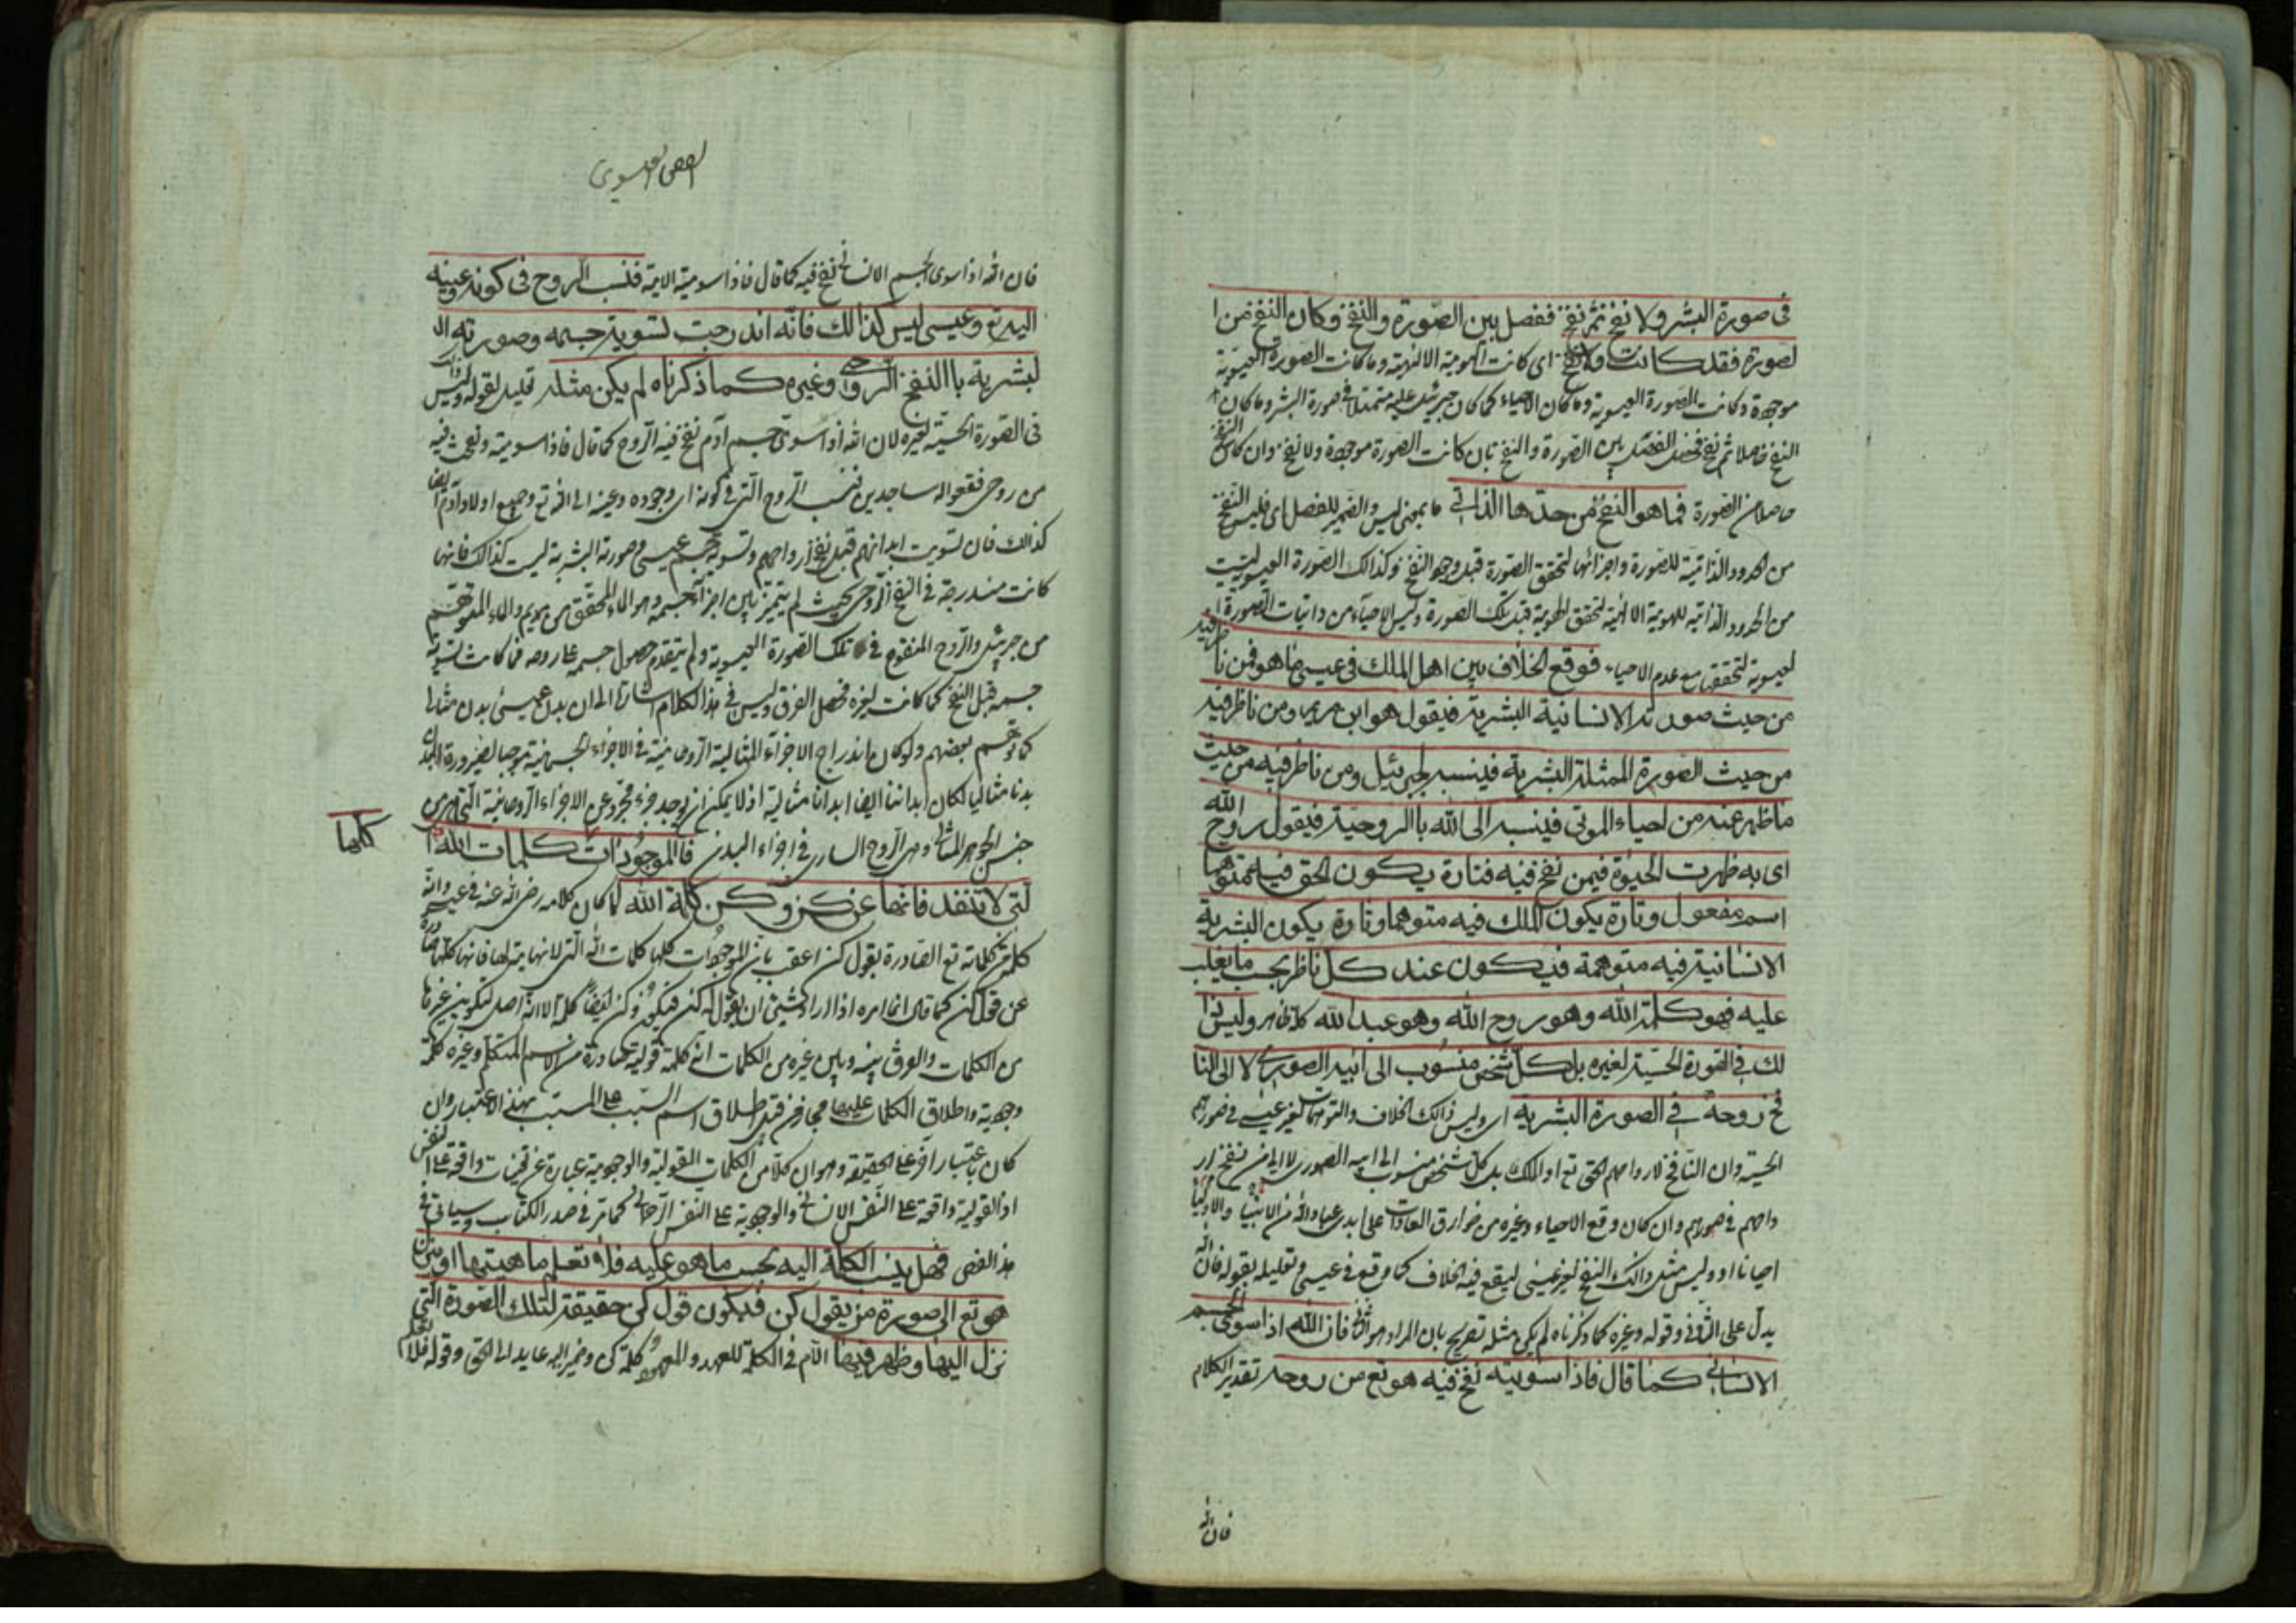 فى صورة البشر ولا نفخ ثم نفخ ففصل بين الصورة والنفخ وكان النفخ من ا
لصورة فقد كانت ولا نفخ اى كانت الهوية الالهية وما كانت الصورة العيسوية
موجودة وكانت الصورة العيسوية وما كان الاحياء كما كان جبرئيل عليه متمثلا فى صورة البشر وما كان
النفخ حاصلا ثم نفخ فحصل الفصل بين الصورة والنفخ بان كانت الصورة موجودة ولا نفخ وان كان النفخ
حاصلا من الصورة فما هو النفخ من حدها الذاتى ما بمعنى ليس والضمير للفصل اى فليس النفخ
من الحدود الذاتية للصورة واجزائها لتحقق الصورة قبل وجود النفخ وكذالك الصورة العيسوية ليست
من الحدود الذاتية للهوية الالهية لتحقق الهوية قبل تلك الصورة وليس الاحياء من ذاتيات الصورة ا
لعيسوية لتحققها مع عدم الاحياء فوقع الخلاف بين اهل الملل فى عيسى ما هو فمن ناظر فيه
من حيث صورته الانسانية البشرية فيقول هو ابن مريم ومن ناظر فيه
من حيث الصورة الممثلة البشرية فينسبه لجبرئيل ومن ناظر فيه من حيث
ما ظهر عنه من احياء الموتى فينسبه الى الله بالروحية فيقول روح الله
اى به ظهرت الحيوة فيمن نفخ فيه فتارة يكون الحق فيه متوهما
اسم مفعول وتارة يكون الملك فيه متوهما وتارة يكون البشرية
الانسانية فيه متوهمة فيكون عند كل ناظر بحسب ما يغلب
عليه فهو كلمة الله وهو روح الله وهو عبد الله كله ظاهر وليس ذا
لك فى الصورة الحسية لغيره بل كل شخص منسوب الى ابيه الصورى لا الى النا
فخ روحه فى الصورة البشرية اى وليس ذالك الخلاف والتوهمات لغير عيسى فى صورته
الحسية وان النافخ لارواحهم الحق تع او الملك بل كل شخص منسوب الى ابيه الصورى لا الى من نفخ ار
واحهم فى صورهم وان كان وقع الاحياء وغيره من خوارق العادات على ايدى عباد الله من الانبياء والاولياء
احيانا او وليس مثل ذالك النفخ لغير عيسى ليقع فيه الخلاف كما وقع فى عيسى وتعليله بقوله فان الله
يدل على الثانى وقوله وغيره كما ذكرناه لم يكن مثله تصريح بان المراد هو الثانى فان الله اذا سوى الجسم
الانسانى كما قال فاذا سويته نفخ فيه هو تع من روحه تقدير الكلام
فان الله
الفص العيسوى
فان الله اذا سوى الجسم الانسانى نفخ فيه كما قال فاذا سويته الاية فنسب الروح فى كونه وعينه
اليه تع وعيسى ليس كذالك فانه اندرجت تسوية جسمه وصورته ال
لبشرية باالنفخ الروحى وغيره كما ذكرناه لم يكن مثله تعليل لقوله وليس ذالك
فى الصورة الحسية لغيره لان الله اذا سوى جسم آدم نفخ فيه الروح كما قال فاذا سويته ونفخت فيه
من روحى فقعوا له ساجدين فنسب الروح التى فى كونه اى وجوده وعينه الى الله تع وجميع اولاد آدم ايضا
كذالك فان تسويت ابدانهم قبل نفخ ارواحهم وتسوية جسم عيسى وصورته البشرية ليست كذالك فانها
كانت مندرجة فى النفخ الروحى بحيث لم يتميز بين اجزاء جسمه وهو الماء المحقق من مريم والماء المتوهم
من جبرئيل والروح المنفوخ فى تلك الصورة العيسوية ولم يتقدم حصول جسمه على روحه فما كانت تسوية
جسمه قبل النفخ كما كانت لغيره فحصل الفرق وليس فى هذا الكلام اشارة الى ان بدن عيسى بدن مثالى
كما توهم بعضهم ولو كان اندراج الاجزاء المثالية الروحانية فى الاجزاء الجسمانية موجبا لصيرورة البدن
بدنا مثاليا لكان ابداننا ايضا ابدانا مثالية اذ لا يمكن ان يوجد جزء مجرد عن الاجزاء الروحانية التى هى من
جنس الجوهر المثالى وهى الروح السارى فى اجزاء البدن فالموجودات كلمات الله ا
كلها
لتى لا تنفد فانها عن كن وكن كلمة الله لما كان كلامه رضى الله عنه فى عيسى وانه
كلمة من كلماته تع الصادرة بقول كن اعقب بان الموجودات كلها كلمات الله التى لا نهاية لها فانها كلها صادرة
عن قول كن كما قال انما امره اذا اراد شيئا ان يقول له كن فيكون وكن ايضا كلمة الا انه اصل لتكوين غيرها
من الكلمات والفرق بينه وبين غيره من الكلمات انه كلمة قولية صادرة من الاسم المتكلم وغيره كلمة
وجودية واطلاق الكلمات عليها مجاز من قبيل اطلاق اسم السبب على المسبب بهذا الاعتبار وان
كان باعتبار آخر على الحقيقة وهو ان كلا من الكلمات القولية والوجودية عبارة عن تعينات واقعة على النفس
اذ القولية واقعة على النفس الانسانى والوجودية على النفس الرحمانى كما مر فى صدر الكتاب وسياتى فى
هذا الفص فهل ينسب الكلمة اليه بحسب ما هو عليه فلا تعلم ماهيتها او ينزل
هو تع الى صورة من يقول كن فيكون قول كن حقيقة لتلك الصورة التى
نزل اليها وظهر فيها اللام فى الكلمة للعهد والمعهود كلمة كن وضمير اليه عايد الى الحق وقوله فلا تعلم